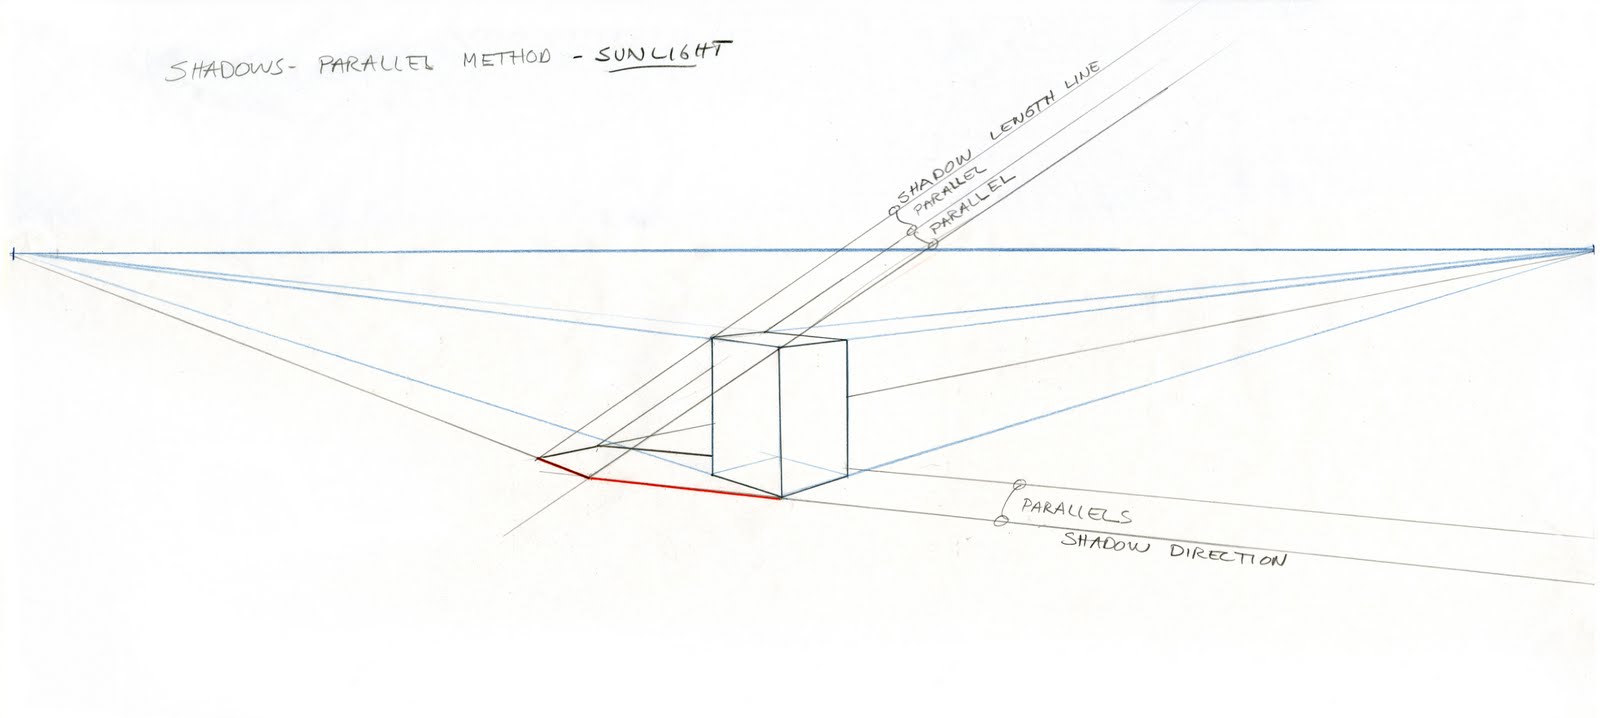 SHADOWS- PARALLEL METHOD - SUNLIGHT
SHADOW LENGTH LINE
PARALLEL
PARALLEL
PARALLELS
SHADOW DIRECTION